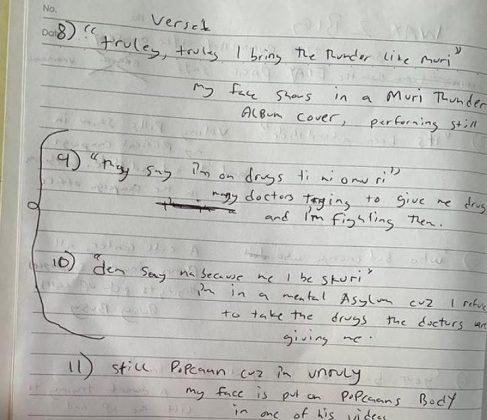 No.
Verse 1
Date
8) "truley, truley I bring the thunder like muri"
my face shows in a Muri Thunder
ALBUM cover, performing still
9) "they say i'm on drugs ti ni omu ri"
many doctors trying to give me drug
and I'm fighting them.
10) "dem say na because me I be skuri"
I'm in a mental Asylum cuz I refuse
to take the drugs the doctors
giving me.
11) still PoPcaan cuz im unruly
my face is put on PoPcaans Body
in one of his videos